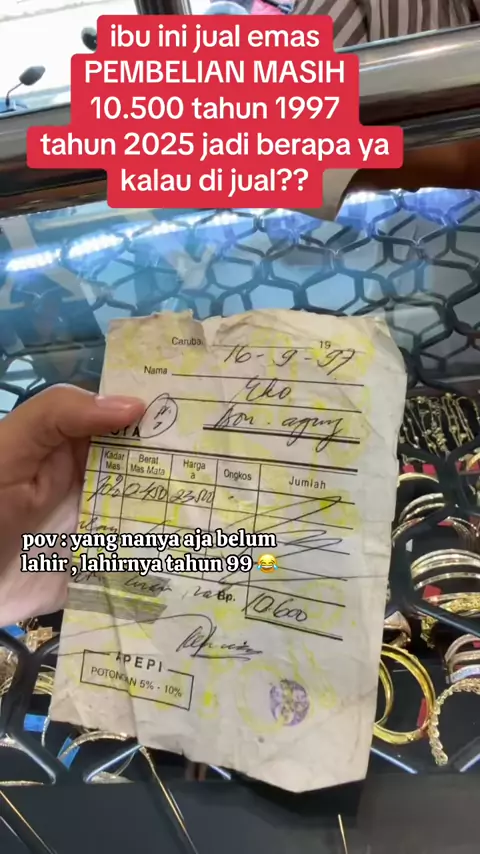 ibu ini jual emas
PEMBELIAN MASIH
10.500 tahun 1997
tahun 2025 jadi berapa ya
kalau di jual??
Caruba, 16-9-97 19
Nama Eko
Kadar Mas Berat Mas Mata Harga a Ongkos Jumlah
0.450 23.500
pov : yang nanya aja belum
lahir , lahirnya tahun 99 😂
Rp. 10.600
APEPI
POTONGAN 5% - 10%